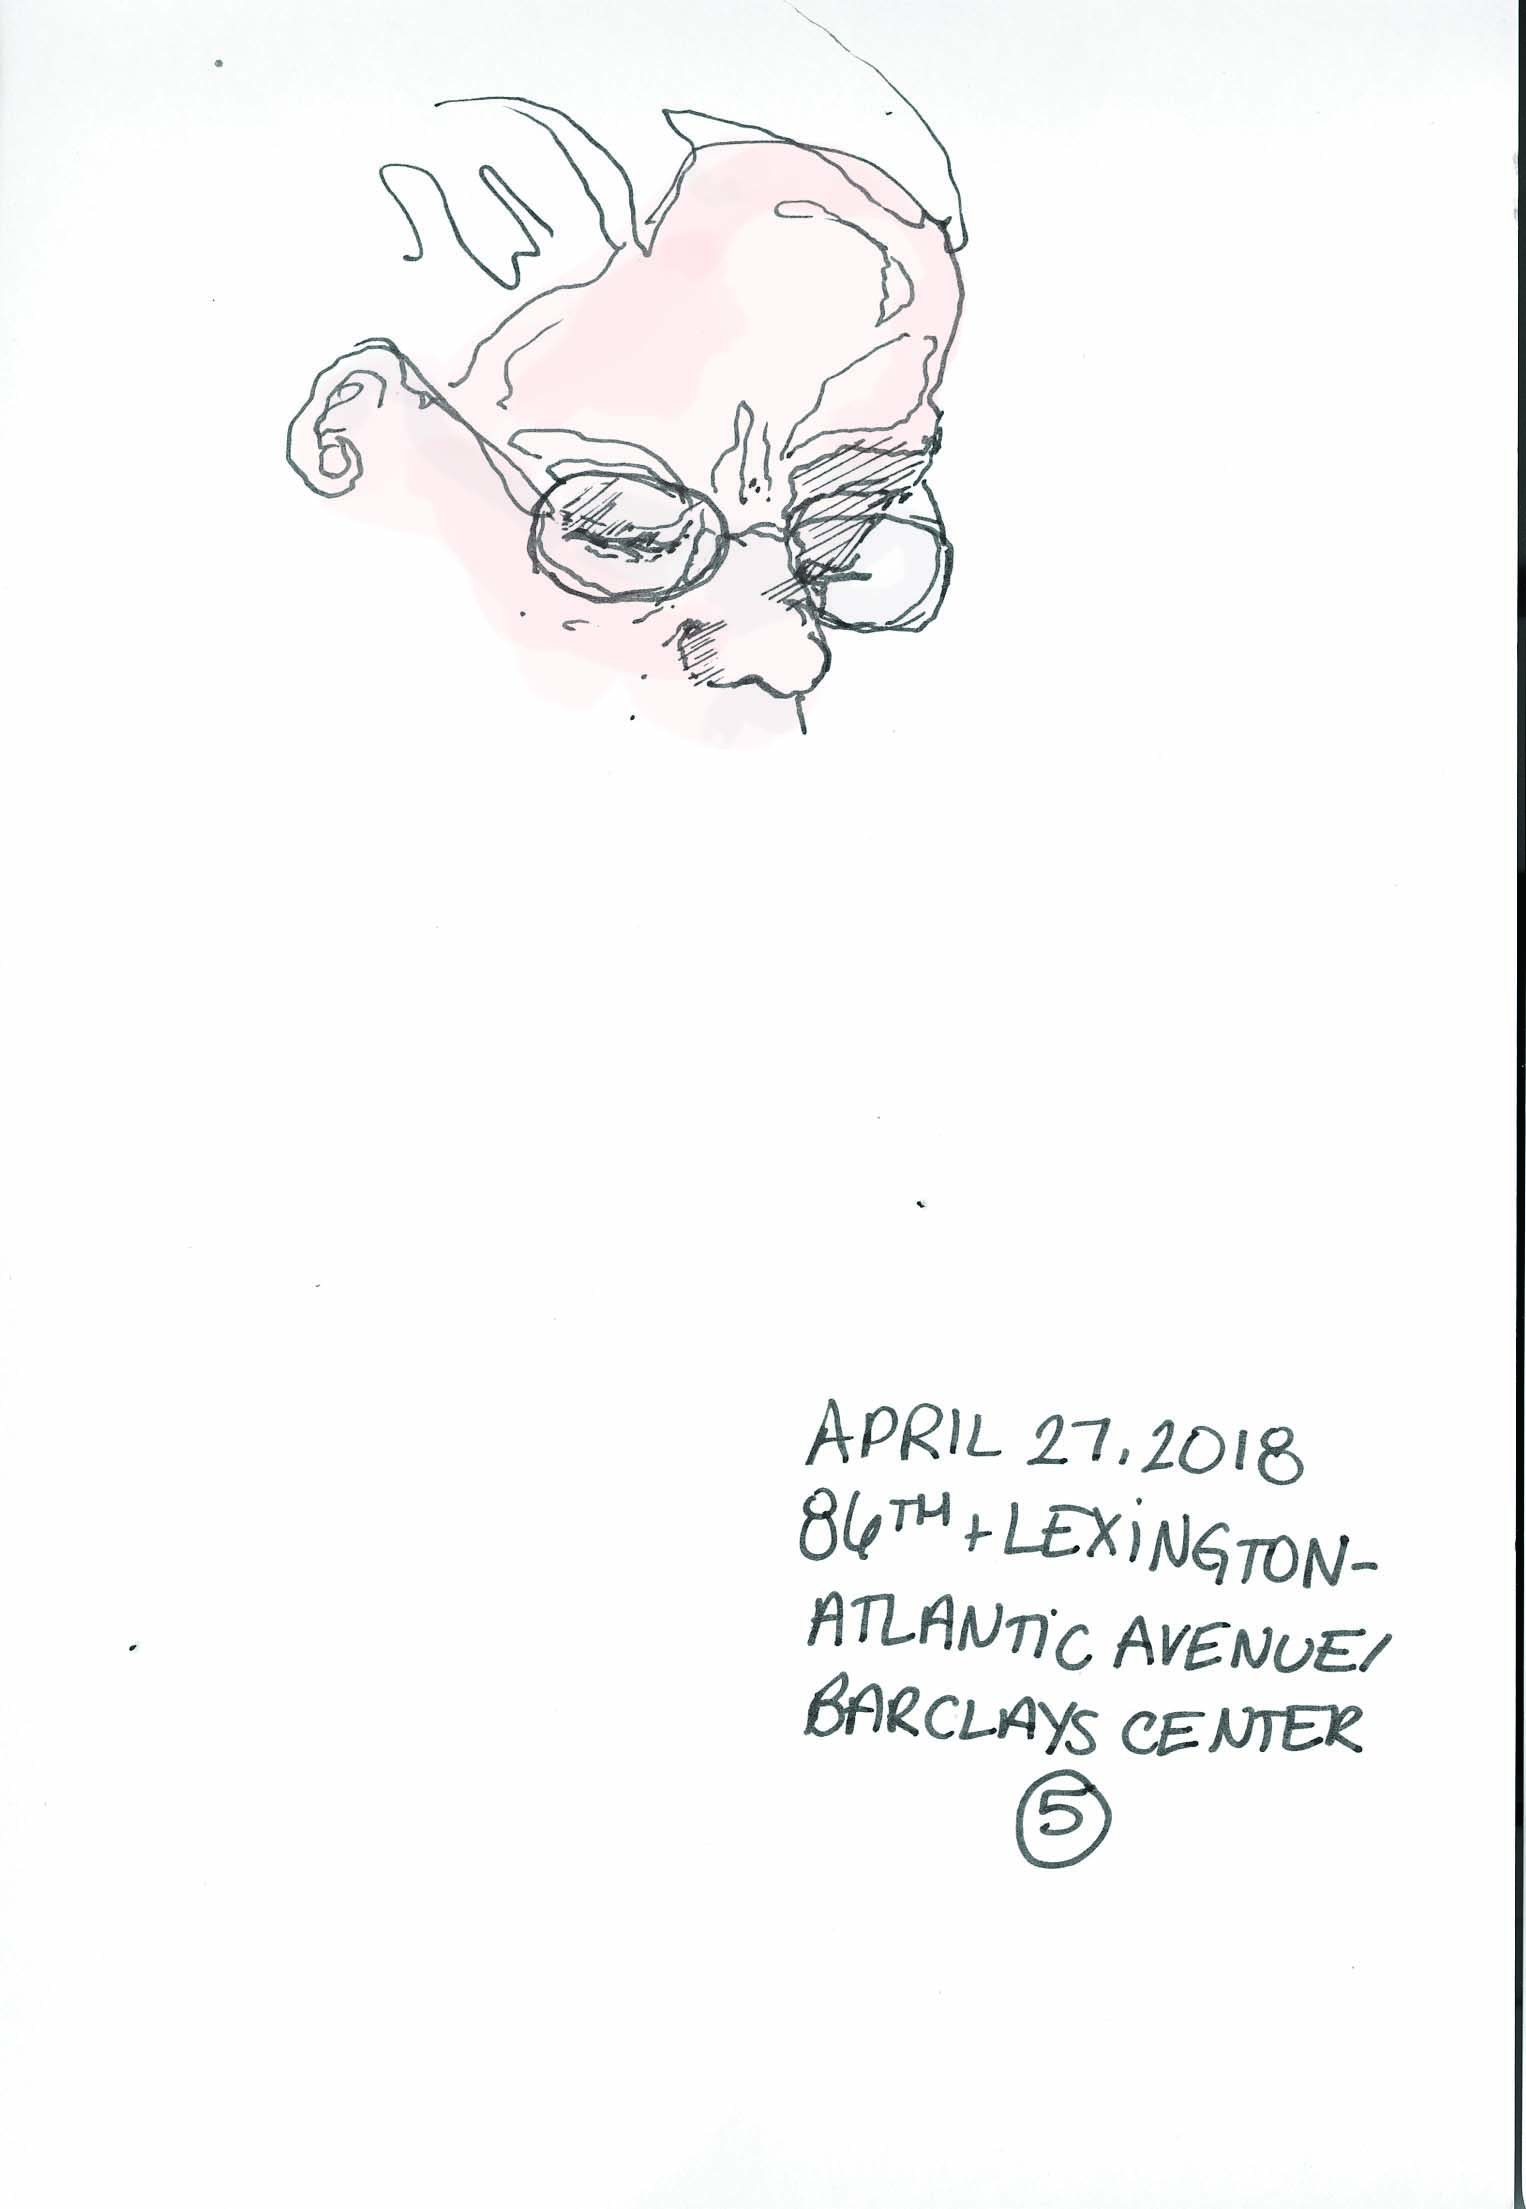 APRIL 27, 2018
86TH + LEXiNGTON-
ATLANTiC AVENUE/
BARCLAYS CENTER
5